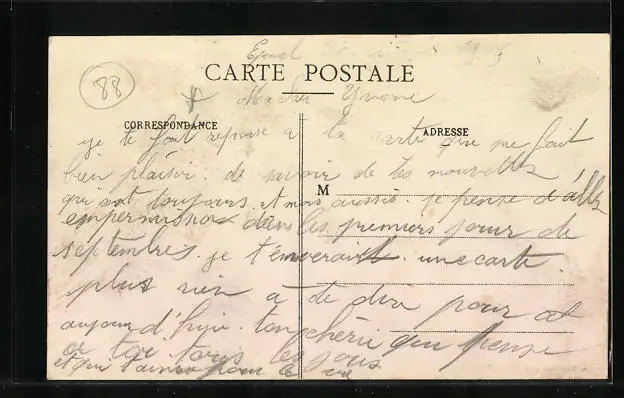 Epinal
88
CARTE POSTALE
Yvone
CORRESPONDANCE
ADRESSE
je te fait reponse a la carte que me fait
bien plaisir. de savoir de tes nouvelles
qui sont toujours. et mois aussis. je pense d'allé
M
enpermission dans les premiers jour de
septembres. je t'enverait. une carte.
plus rien a te dire pour
aujourd'hui. ton cherie qui pense
a toi tous les jours
et qui t'aime pour la vie